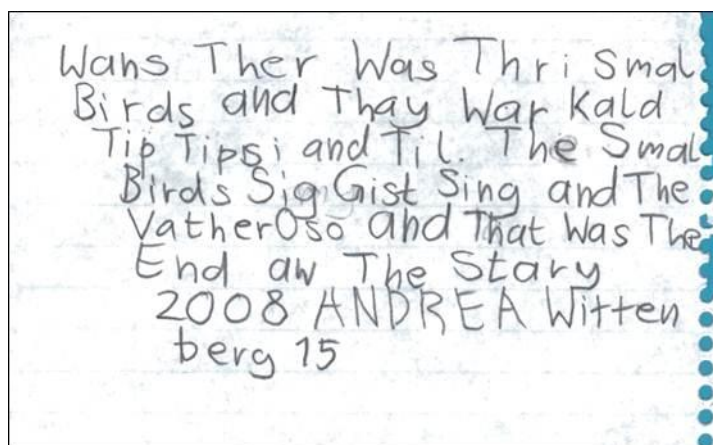 Wans Ther Was Thri Smal
Birds and Thay War Kald
Tip Tipsi and Til. The Smal
Birds Sig Gist Sing and The
VatherOso and That Was The
End aw The Stary
2008 ANDREA Witten
berg 15